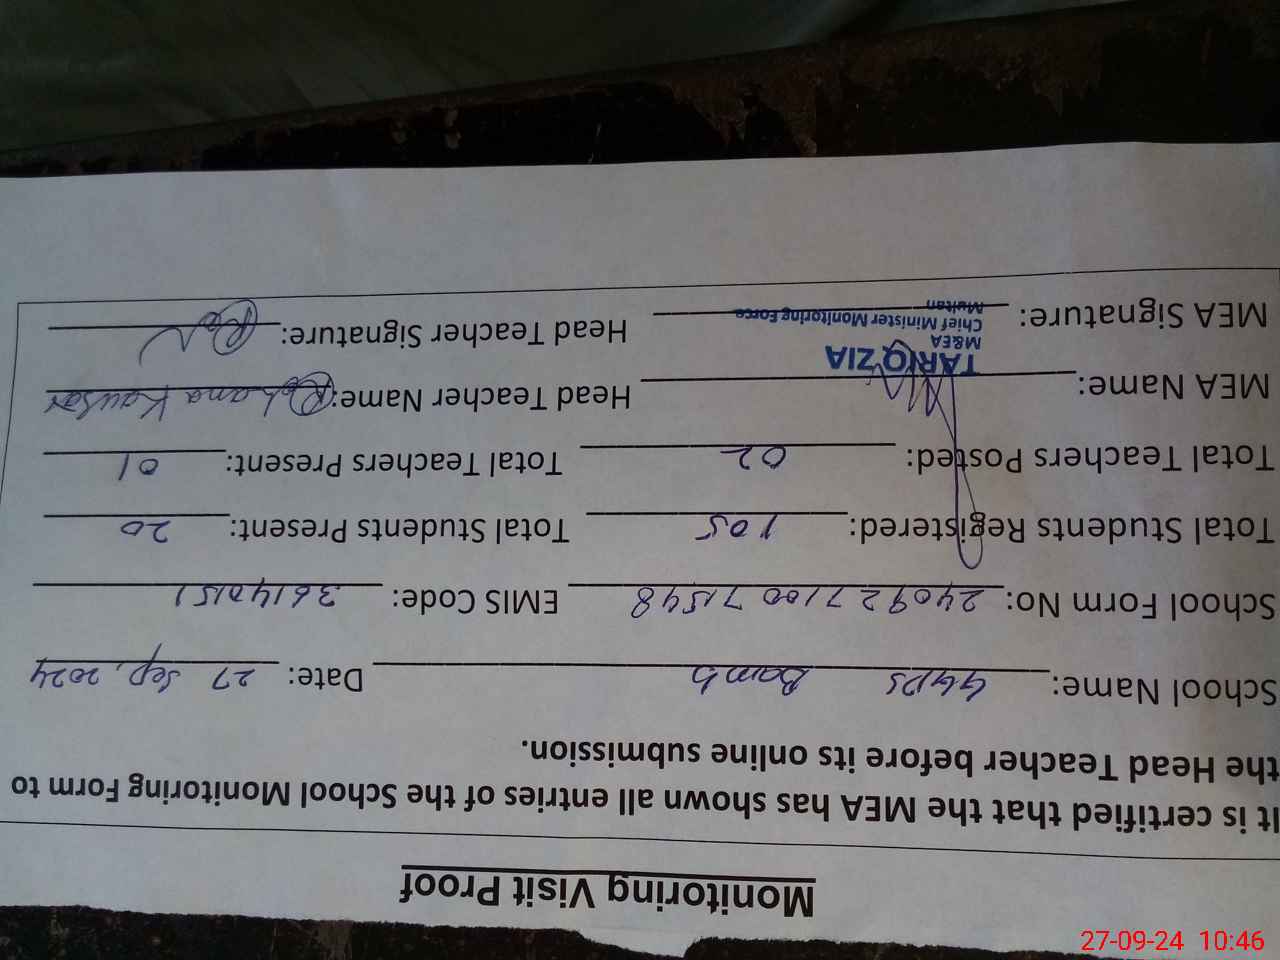 Monitoring Visit Proof
It is certified that the MEA has shown all entries of the School Monitoring Form to
the Head Teacher before its online submission.
School Name: GGPS Bamb Date: 27 Sep, 2024
School Form No: 24092710071548 EMIS Code: 36140151
Total Students Registered: 105 Total Students Present: 20
Total Teachers Posted: 02 Total Teachers Present: 01
MEA Name: Head Teacher Name: Rehana Kausar
TARIQ ZIA
M&EA
Chief Minister Monitoring Force
Multan
MEA Signature: Head Teacher Signature:
27-09-24 10:46